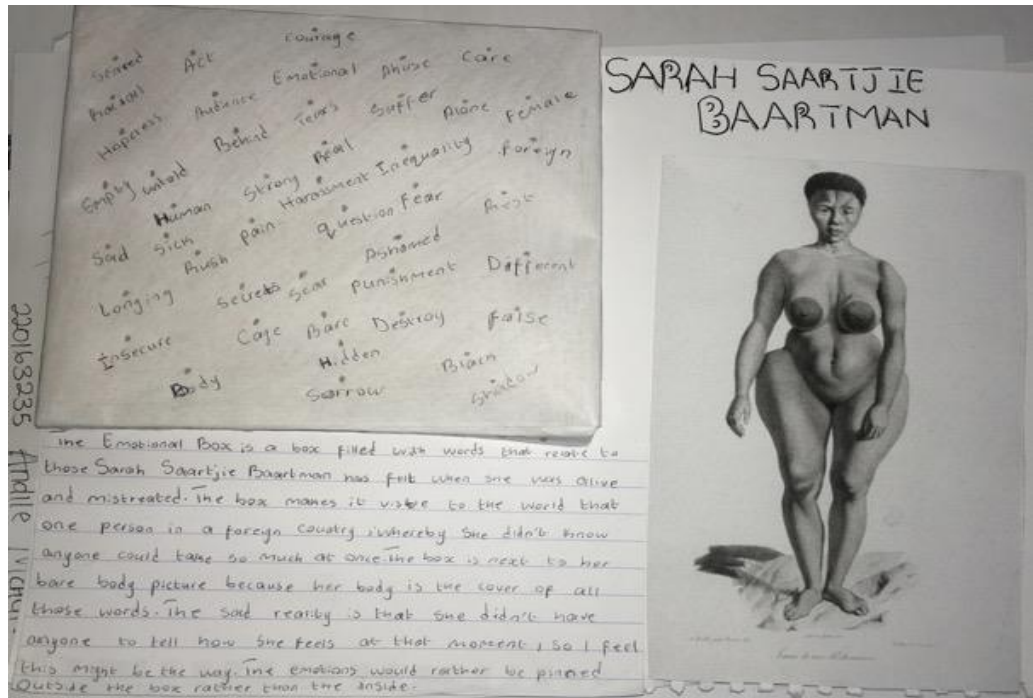 SARAH SAARTJIE
BAARTMAN
Courage
Scared Act Emotional Abuse Care
Hopeless Audience Behind Tears Suffer Alone Female
Empty Untold Human Strong Real Harassment Inequality Foreign
Sad Sick Rush Pain Question Fear
Longing Secrets Scar Ashamed Punishment Different
Insecure Cage Bare Destroy False
Body Hidden Black
Sorrow Shadow
The Emotional Box is a box filled with words that relate to
those Sarah Saartjie Baartman has felt when she was alive
and mistreated. The box makes it to the world that
one person in a foreign country, whereby she didn't know
anyone could take so much at once. The box is next to her
bare body picture because her body is the cover of all
those words. The sad reality is that she didn't have
anyone to tell how she feels at that moment, so I feel
this might be the way. The emotions would rather be pinned
outside the box rather than the inside.
220163235 Andile